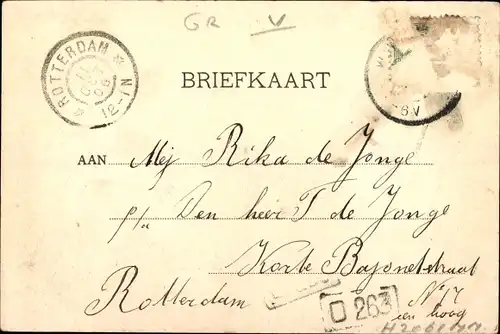 GR V
ROTTERDAM
12-1N
8V
BRIEFKAART
AAN Mej Rika de Jonge
p/a Den heer T de Jonge
Korte Bajonetstraat
Rotterdam No 17
een hoog
D 263